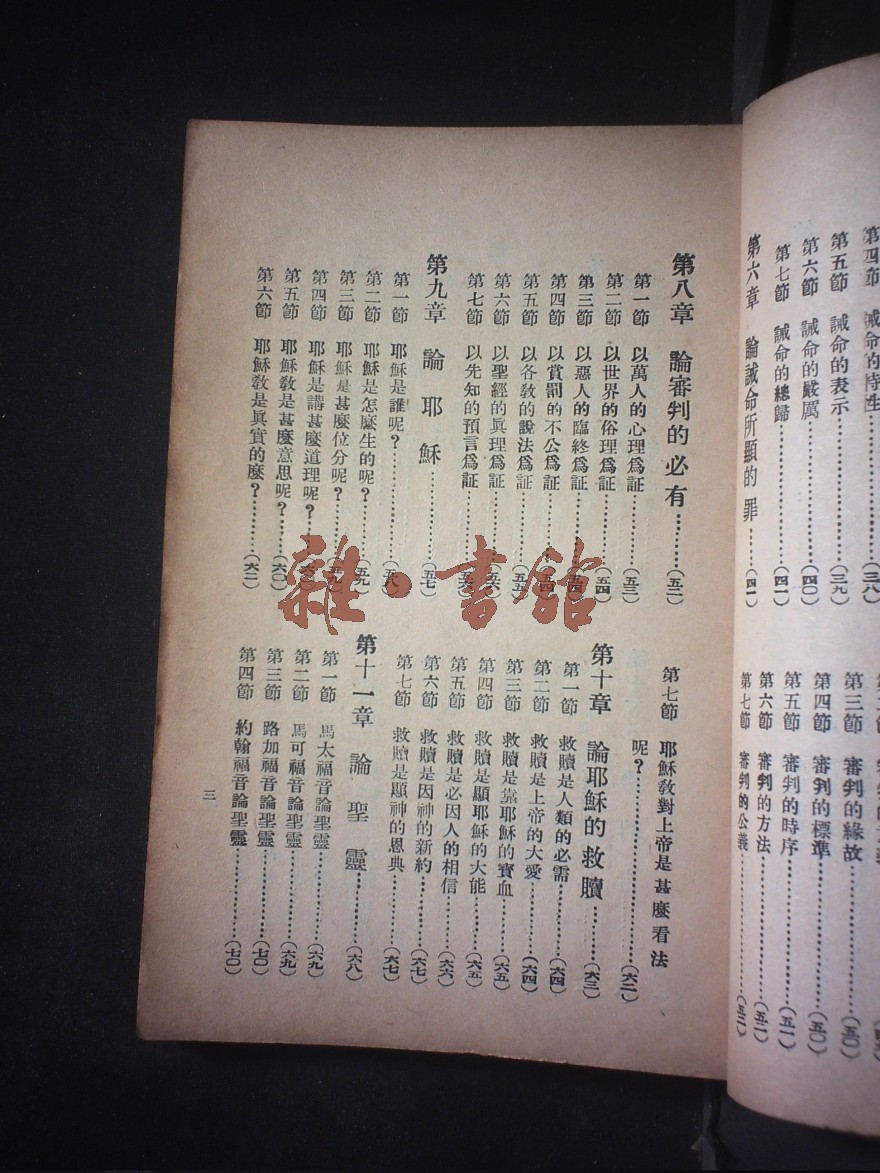 第四節 誡命的特性………(三八)
第五節 誡命的表示………(三九)
第六節 誡命的嚴厲………(四〇)
第七節 誡命的總歸………(四一)
第六章 論誡命所顯的罪……(四一)
第三節 審判的緣故………(五〇)
第四節 審判的標準………(五〇)
第五節 審判的時序………(五一)
第六節 審判的方法………(五二)
第七節 審判的公義………(五二)
第八章 論審判的必有………(五二)
第一節 以萬人的心理爲証………(五三)
第二節 以世界的俗理爲証………(五四)
第三節 以惡人的臨終爲証………(五四)
第四節 以賞罰的不公爲証………(五四)
第五節 以各教的說法爲証………(五五)
第六節 以聖經的眞理爲証………(五六)
第七節 以先知的預言爲証………(五六)
第九章 論耶穌………(五七)
第一節 耶穌是誰呢?………(五八)
第二節 耶穌是怎麽生的呢?………(五九)
第三節 耶穌是甚麽位分呢?………(五九)
第四節 耶穌是講甚麽道理呢?………
第五節 耶穌教是甚麽意思呢?………(六〇)
第六節 耶穌教是眞實的麽?………(六二)
第七節 耶穌教對上帝是甚麽看法
呢?………(六二)
第十章 論耶穌的救贖………(六三)
第一節 救贖是人類的必需………(六四)
第二節 救贖是上帝的大愛………(六四)
第三節 救贖是靠耶穌的寳血………(六五)
第四節 救贖是顯耶穌的大能………(六五)
第五節 救贖是必因人的相信………(六六)
第六節 救贖是因神的新約………(六七)
第七節 救贖是顯神的恩典………(六七)
第十一章 論聖靈………(六八)
第一節 馬太福音論聖靈………(六九)
第二節 馬可福音論聖靈………(六九)
第三節 路加福音論聖靈………(七〇)
第四節 約翰福音論聖靈………(七〇)
三
雜·書館